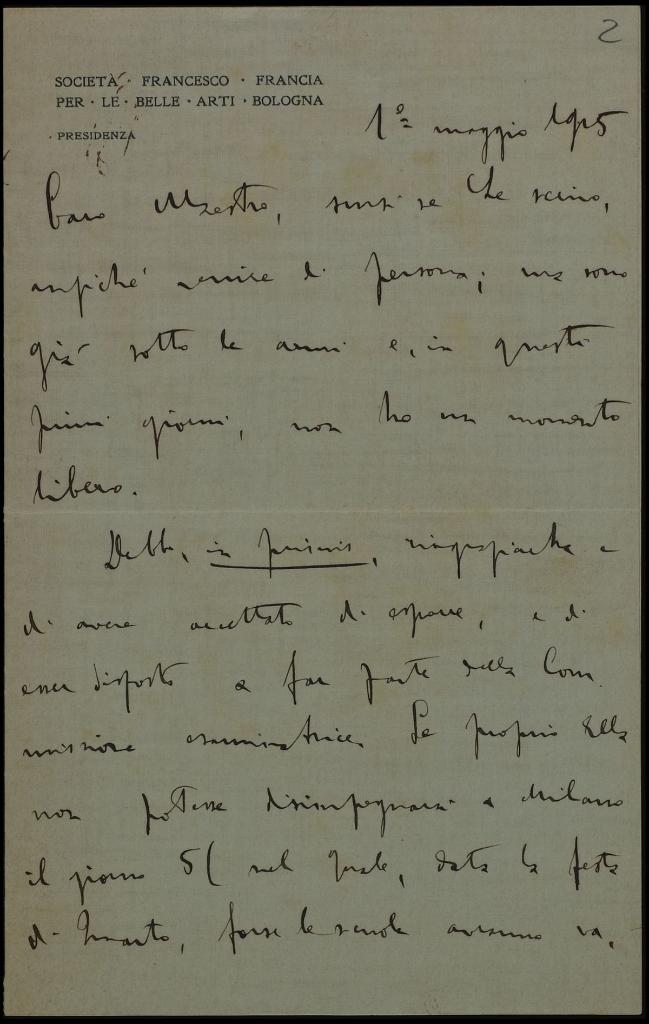 2
SOCIETÀ · FRANCESCO · FRANCIA
PER · LE · BELLE · ARTI · BOLOGNA
· PRESIDENZA
1º maggio 1915
Caro Maestro, scusi se Le scrivo,
anziché venire di persona; ma sono
già sotto le armi e, in questi
primi giorni, non ho un momento
libero.
Debbo, in primis, ringraziarla e
di avere accettato di esporre, e di
esser disposto a far parte della Com
missione esaminatrice. Se proprio Ella
non potesse disimpegnarsi a Milano
il giorno 5 ( nel quale, data la festa
di Quarto, forse le scuole avranno va,